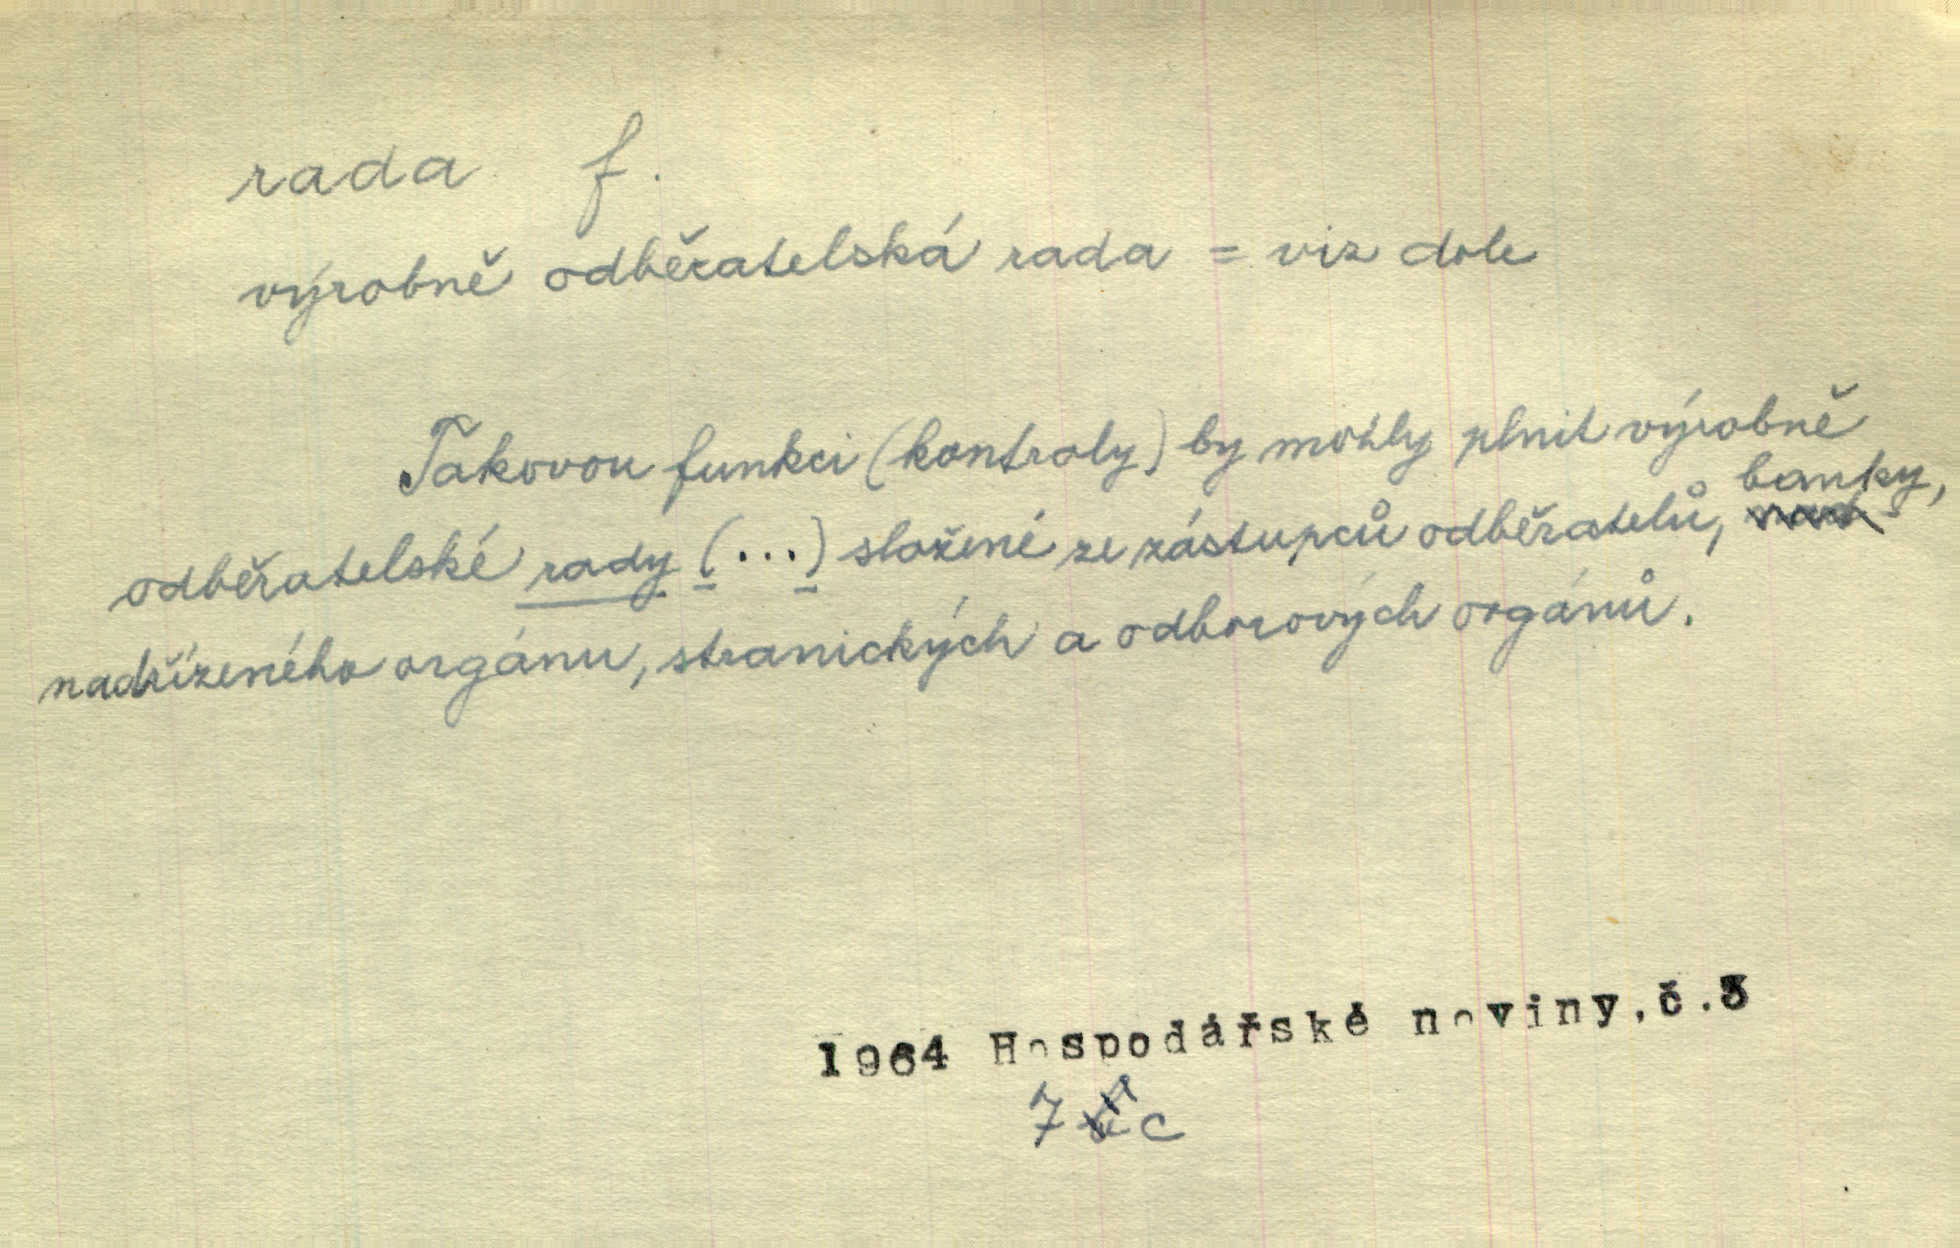 rada f.
výrobně odběratelská rada = viz dole
Takovou funkci (kontroly) by mohly plnit výrobně
odběratelské rady (...) složené ze zástupců odběratelů, banky,
nadřízeného orgánu, stranických a odborových orgánů.
1964 Hospodářské noviny,č.3
7 c